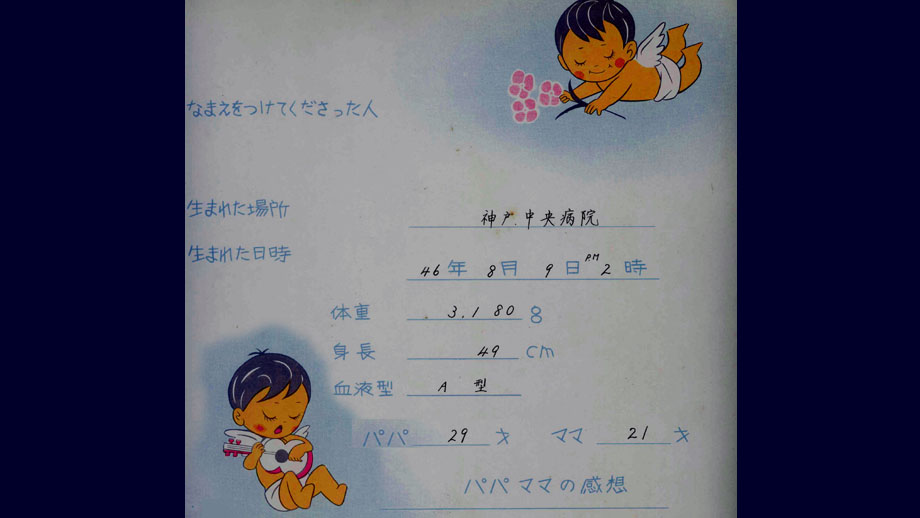 なまえをつけてくださった人
生まれた場所 神戸中央病院
生まれた日時 46年 8月 9日 P.M 2時
体重 3,180 g
身長 49 cm
血液型 A 型
パパ 29 才 ママ 21 才
パパママの感想